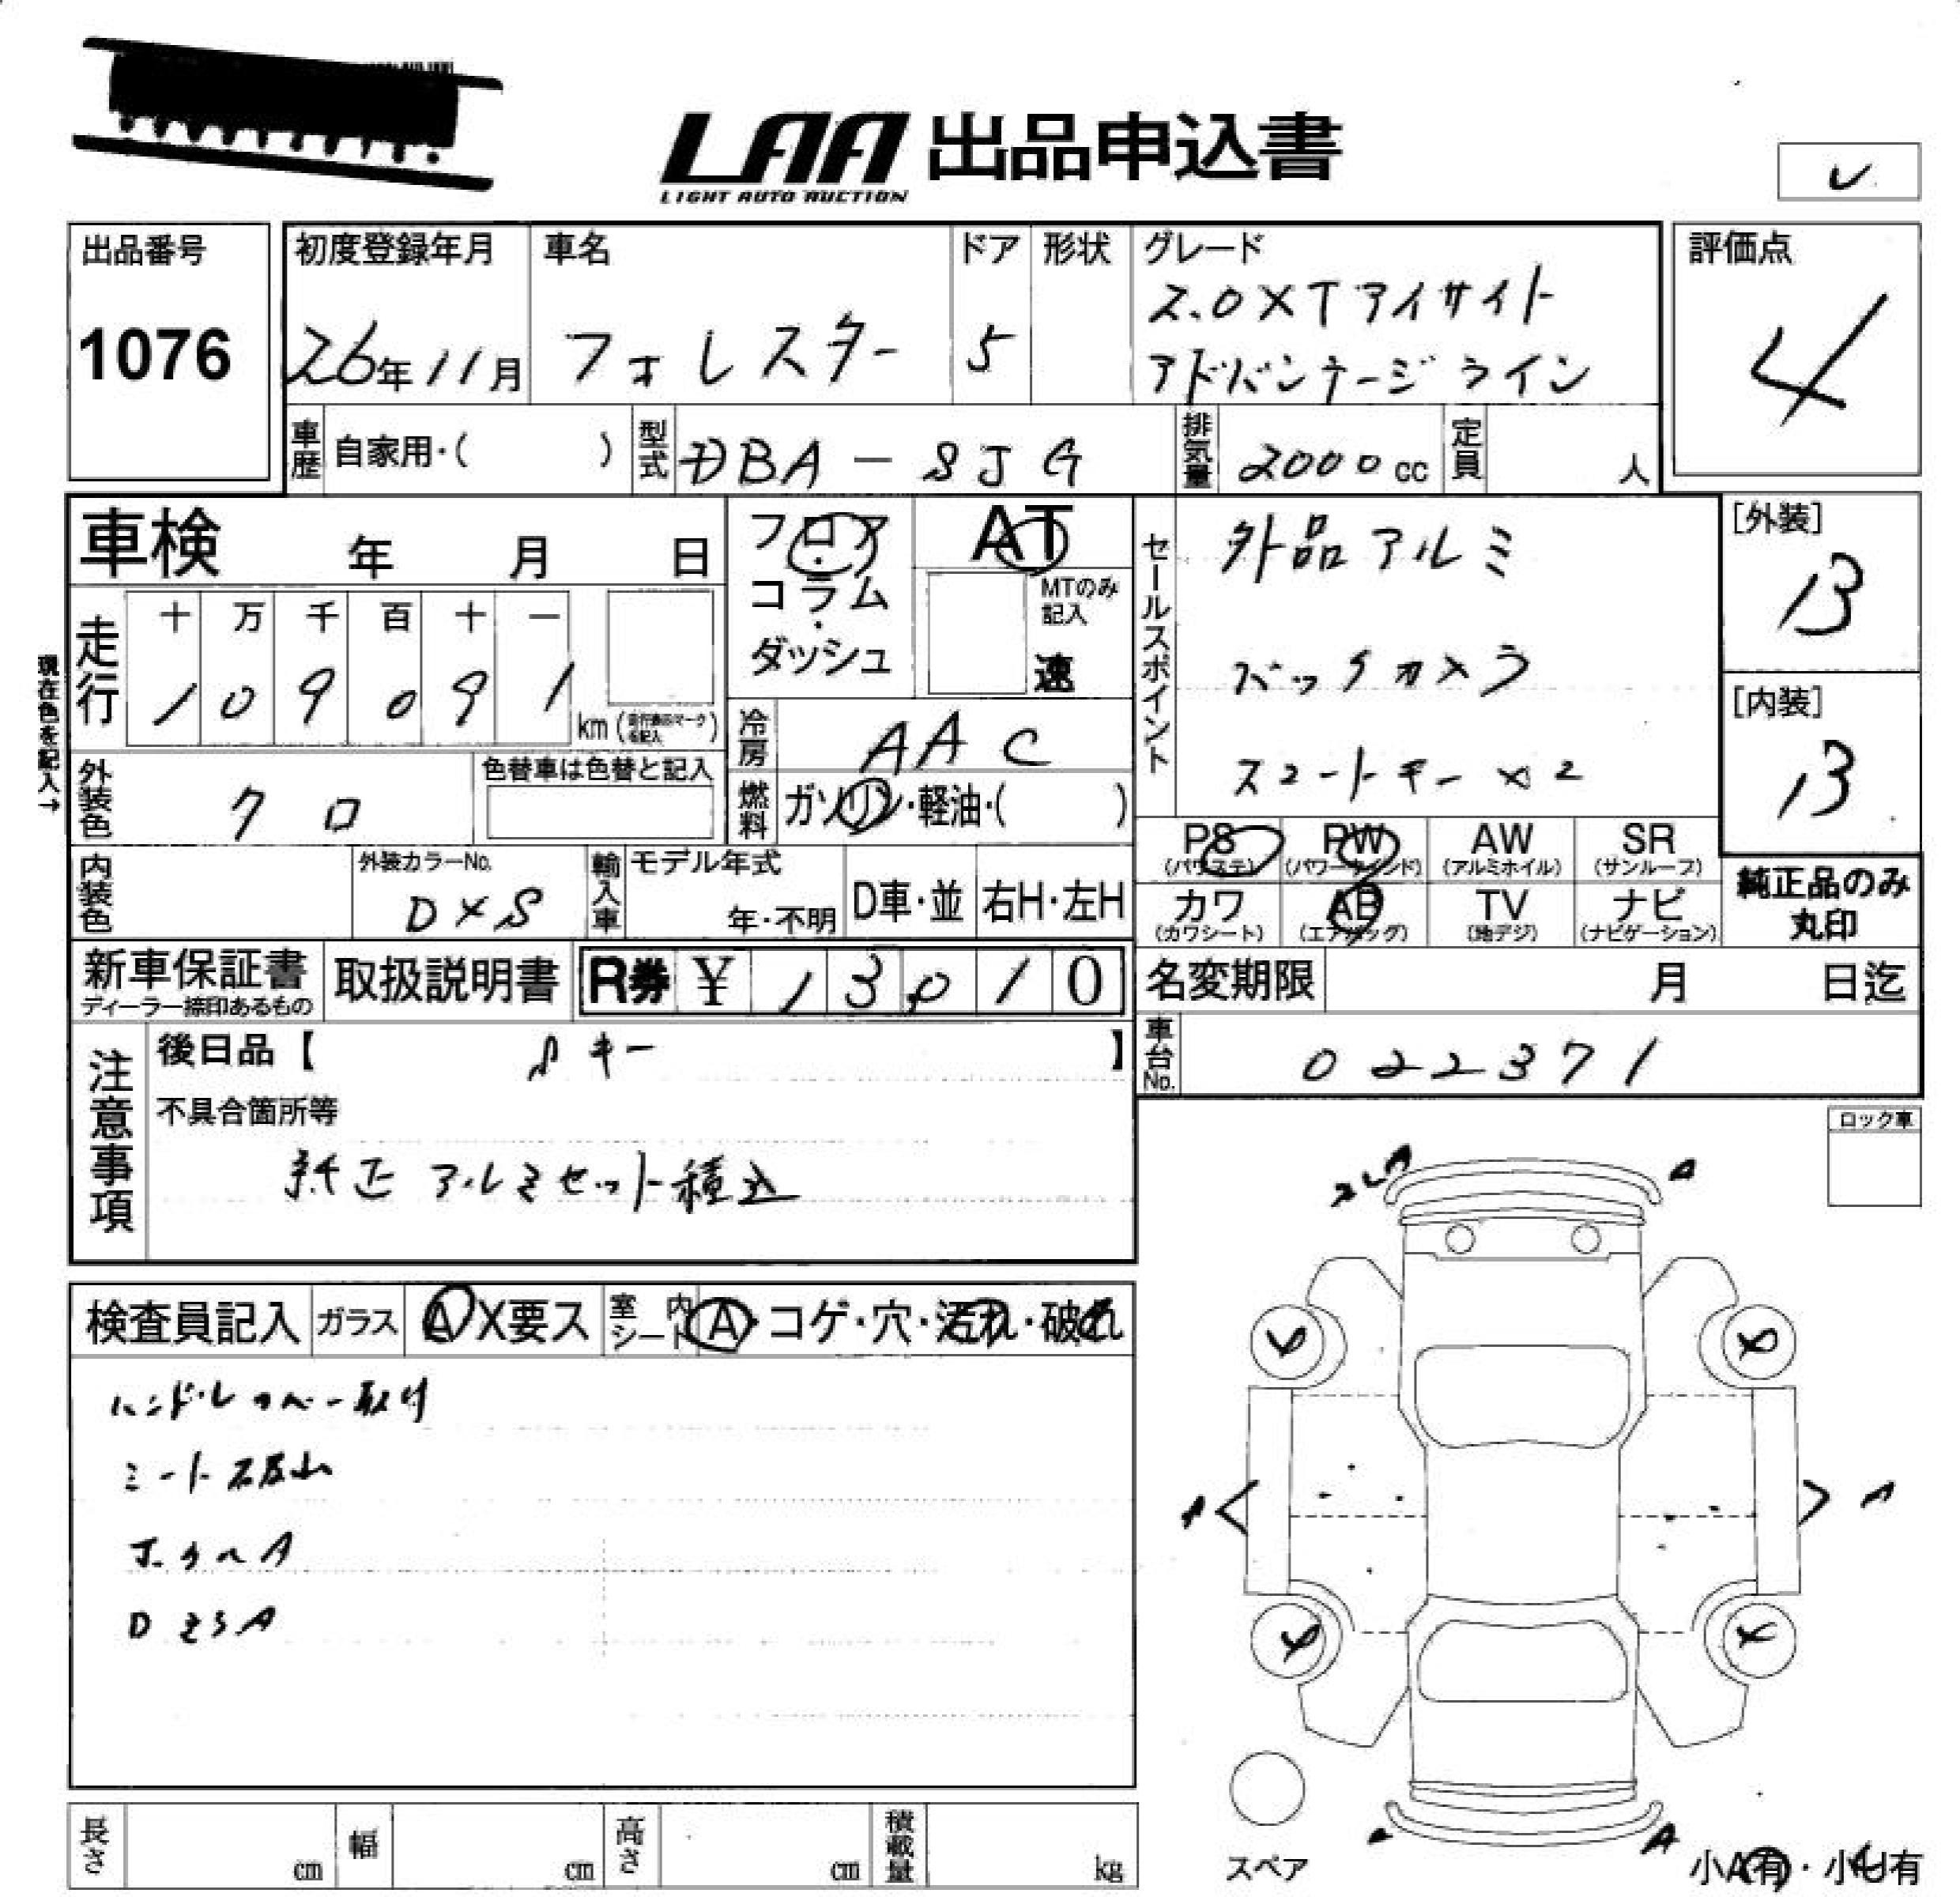 LAA 出品申込書
LIGHT AUTO AUCTION
レ
出品番号
1076
初度登録年月
26年11月
車名
フォレスター
ドア
5
形状
グレード
2.0XTアイサイト
アドバンテージライン
評価点
4
車歴 自家用・( )
型式 DBA-SJG
排気量 2000cc
定員 人
車検 年 月 日
フロア・コラム・ダッシュ
AT
MTのみ記入
速
走行
十 万 千 百 十 一
1 0 9 0 9 1
km
現在色を記入→
冷房 AAC
燃料 ガソリン・軽油・( )
外装色 クロ
色替車は色替と記入
内装色
外装カラーNo.
D×S
輸入車
モデル年式
年・不明
D車・並
右H・左H
セールスポイント
外品アルミ
バックカメラ
スマートキー×2
[外装]
13
[内装]
13
PS (パワステ)
PW (パワーウインド)
AW (アルミホイル)
SR (サンルーフ)
カワ (カワシート)
AB (エアバッグ)
TV (地デジ)
ナビ (ナビゲーション)
純正品のみ
丸印
新車保証書
ディーラー捺印あるもの
取扱説明書
R券 ¥ 13010
名変期限 月 日迄
車台No. 022371
注意事項
後日品【 Sキー 】
不具合箇所等
純正アルミセット積込
ロック車
検査員記入
ガラス A X要ス
室内シート A・コゲ・穴・汚れ・破れ
ハンドルカバー取付
D
A
A
A
A
A
スペア
小A有・小U有
長さ cm
幅 cm
高さ cm
積載量 kg